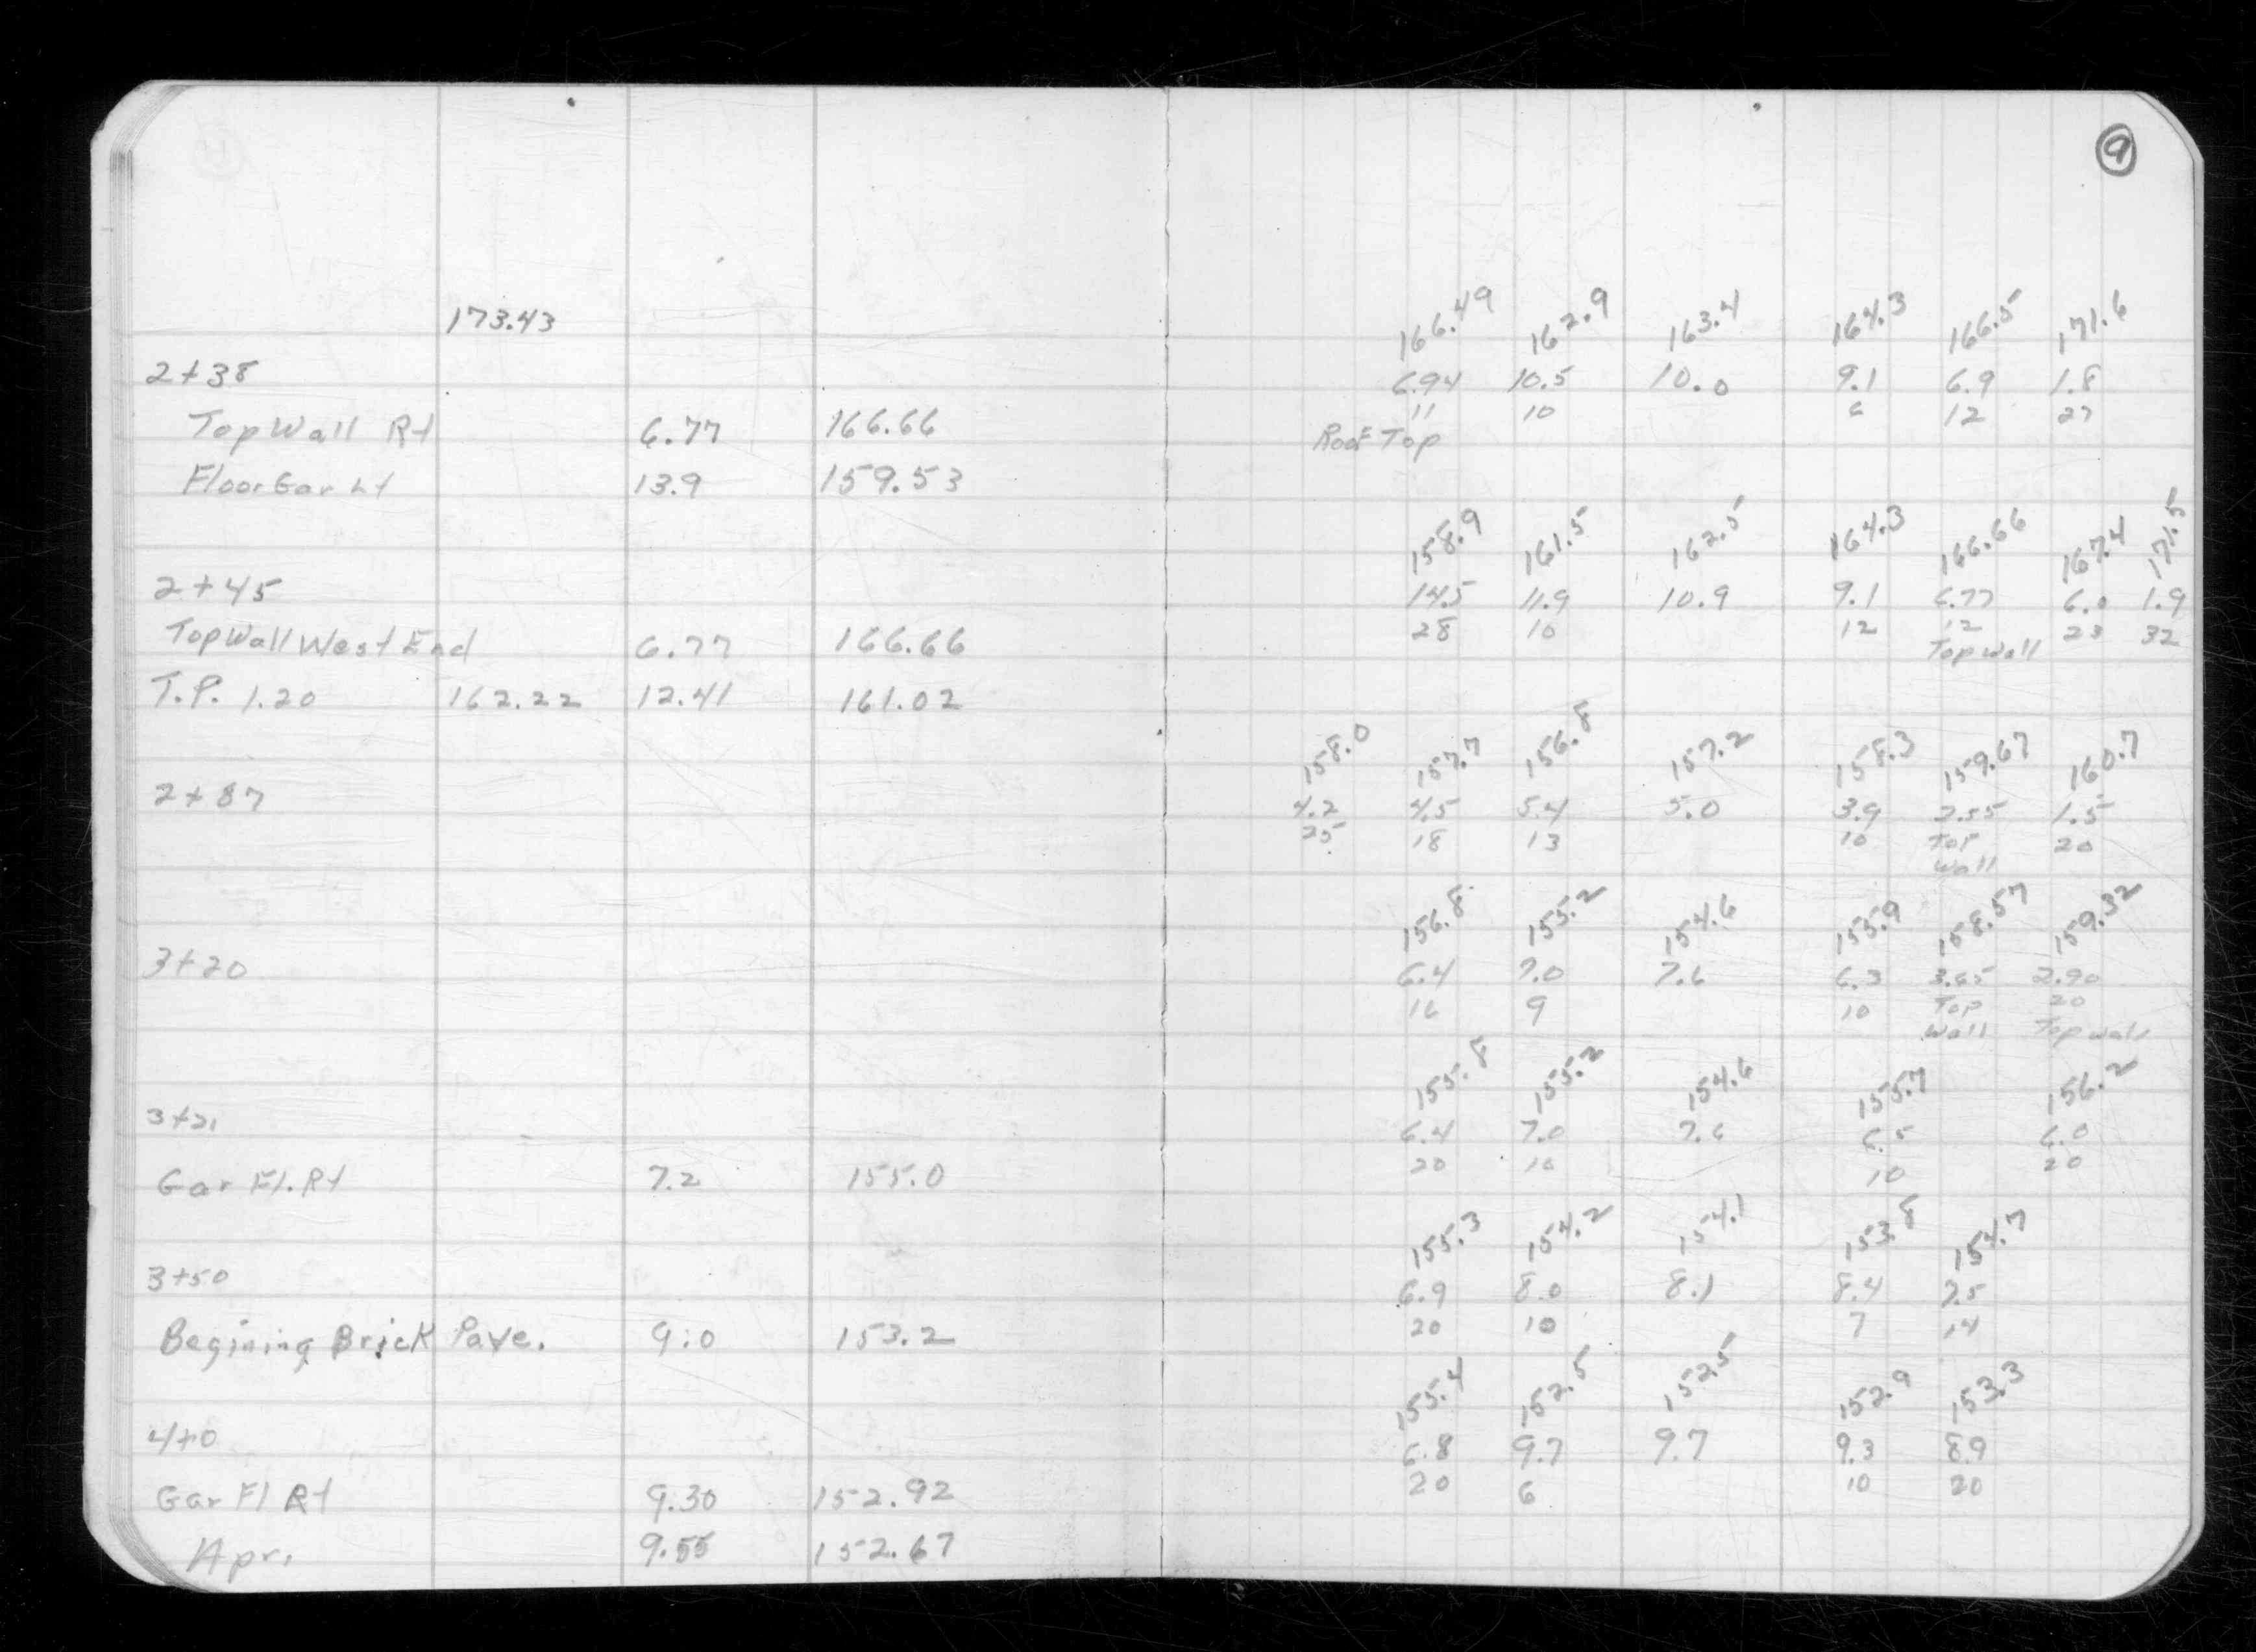 9
173.43
166.49 162.9 163.4 164.3 166.5 171.6
2+38
6.94 10.5 10.0 9.1 6.9 1.8
11 10 6 12 27
Top Wall Rt 6.77 166.66
Roof Top
Floor Gar Lt 13.9 159.53
158.9 161.5 162.5 164.3 166.66 167.4 171.5
2+45
14.5 11.9 10.9 9.1 6.77 6.0 1.9
28 10 12 12 23 32
Top Wall West End 6.77 166.66
Top Wall
T.P. 1.20 162.22 12.41 161.02
158.0 157.7 156.8 157.2 158.3 159.67 160.7
2+87
4.2 4.5 5.4 5.0 3.9 2.55 1.5
25 18 13 10 Top 20
Wall
156.8 155.2 154.6 155.9 158.57 159.32
3+20
6.4 7.0 7.6 6.3 3.65 2.90
16 9 10 Top 20
Wall Top Wall
155.8 155.2 154.6 155.7 156.2
3+21
6.4 7.0 7.6 6.5 6.0
20 10 10 20
Gar Fl. Rt 7.2 155.0
155.3 154.2 154.1 153.8 154.7
3+50
6.9 8.0 8.1 8.4 7.5
20 10 7 14
Begining Brick Pave. 9.0 153.2
155.4 152.5 152.5 152.9 153.3
4+0
6.8 9.7 9.7 9.3 8.9
20 6 10 20
Gar Fl Rt 9.30 152.92
Apr. 9.55 152.67